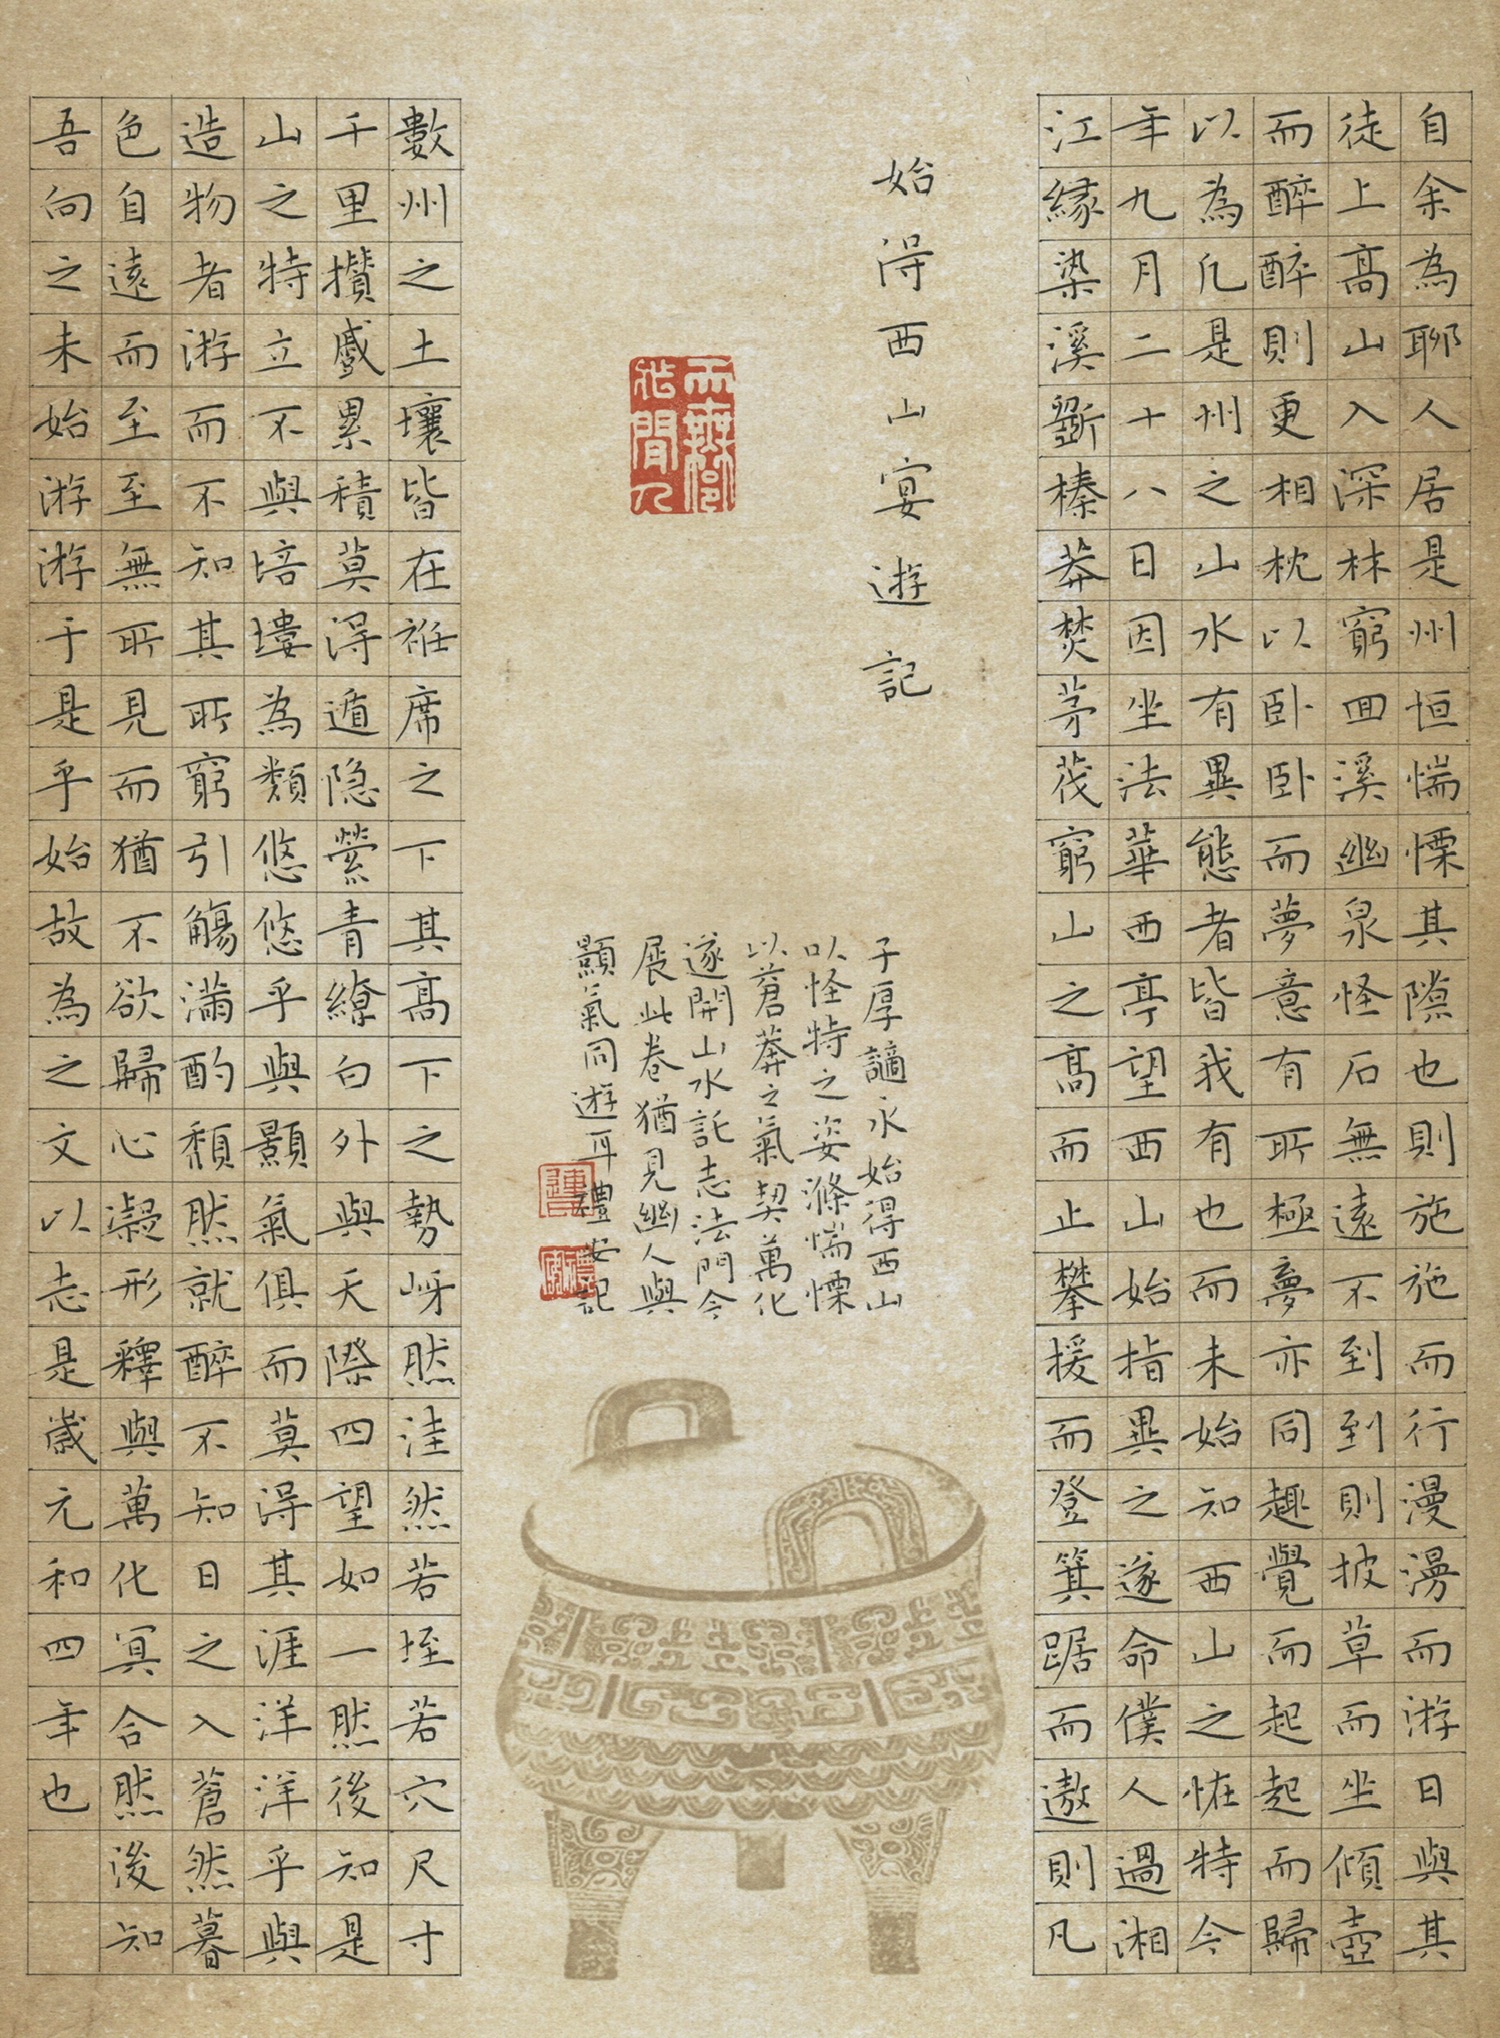 自余為聊人居是州恒惴慄其隙也則施施而行漫漫而游日與其
徒上高山入深林窮回溪幽泉怪石無遠不到到則披草而坐傾壺
而醉醉則更相枕以卧卧而夢意有所極夢亦同趣覺而起起而歸
以為凡是州之山水有異態者皆我有也而未始知西山之恠特今
年九月二十八日因坐法華西亭望西山始指異之遂命僕人過湘
江緣染溪斵榛莽焚茅茷窮山之高而止攀援而登箕踞而遨則凡
始得西山宴遊記
子厚謫永始得西山
以怪特之姿滌惴慄
以蒼莽之氣契萬化
遂開山水託志法門今
展此卷猶見幽人與
顥氣同遊耳禮安記
數州之土壤皆在袵席之下其高下之勢岈然洼然若垤若穴尺寸
千里攢蹙累積莫得遁隱縈青繚白外與天際四望如一然後知是
山之特立不與培塿為類悠悠乎與顥氣俱而莫得其涯洋洋乎與
造物者游而不知其所窮引觴滿酌頹然就醉不知日之入蒼然暮
色自遠而至至無所見而猶不欲歸心凝形釋與萬化冥合然後知
吾向之未始游游于是乎始故為之文以志是歲元和四年也